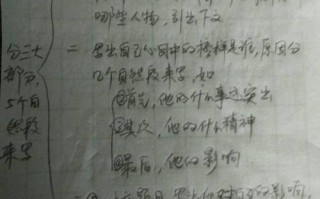 哪些人物，引出下文
分三大
部分，
5个自
然段
来写
二 写出自己心目中的榜样是谁，原因分
几个自然段来写，如
①首先，他的什么事迹突出
②其次，他的什么精神
③最后，他的影响